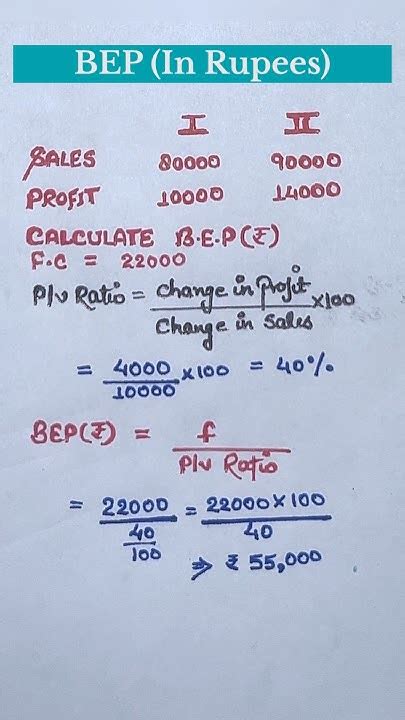 BEP (In Rupees)
I II
SALES 80000 90000
PROFIT 10000 14000
CALCULATE B.E.P(₹)
F.C = 22000
P/v Ratio = Change in Profit ×100
Change in Sales
= 4000 ×100 = 40%
10000
BEP(₹) = f
P/v Ratio
= 22000 = 22000×100
40 40
100
⇒ ₹ 55,000